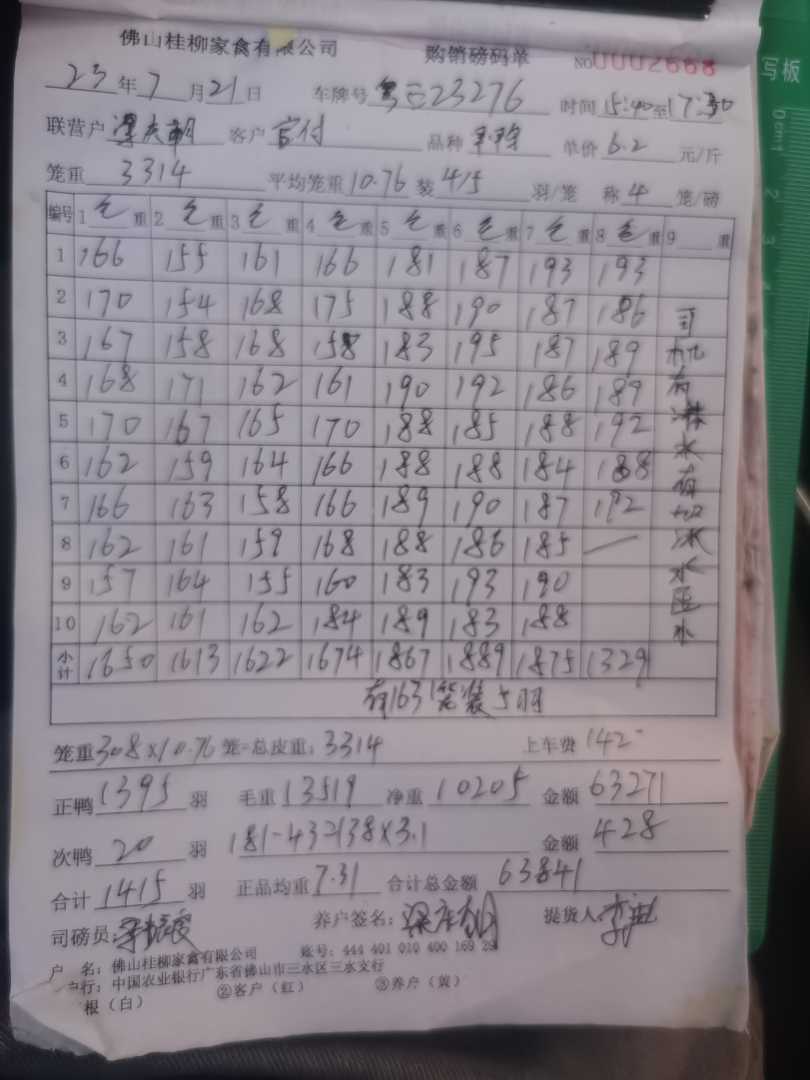 佛山桂柳家禽有限公司 购销磅码单 NO 0002668
23年7月21日 车牌号 23276 时间15:40至17:30
联营户 客户 官付 品种 单价6.2元/斤
笼重3314 平均笼重10.76装4/5羽/笼 称4笼/磅
编号 1毛重 2毛重 3毛重 4毛重 5毛重 6毛重 7毛重 8毛重 9 重
1 166 155 161 166 181 187 193 193
2 170 154 168 175 188 190 187 186
3 167 158 168 158 183 195 187 189
4 168 171 162 161 190 192 186 189
5 170 167 165 170 188 185 188 192
6 162 159 164 166 188 188 184 188
7 166 163 158 166 189 190 187 192
8 162 161 159 168 188 186 185 —
9 157 164 155 160 183 193 190
10 162 161 162 184 189 183 188
小计 1650 1613 1622 1674 1867 1889 1875 1329
司机有淋水有加冰水 水
有163个笼装5羽
笼重308×10.76笼=总皮重:3314 上车费142
正鸭1395羽 毛重13519 净重10205 金额63271
次鸭20羽 181-43=138×3.1 金额428
合计1415羽 正品均重7.31 合计总金额63841
司磅员: 养户签名: 提货人
户 名:佛山桂柳家禽有限公司 账号:444 401 010 400 169 29
行:中国农业银行广东省佛山市三水区三水支行
根(白) ②客户(红) ③养户(黄)
写板
0cm1 2 3 4